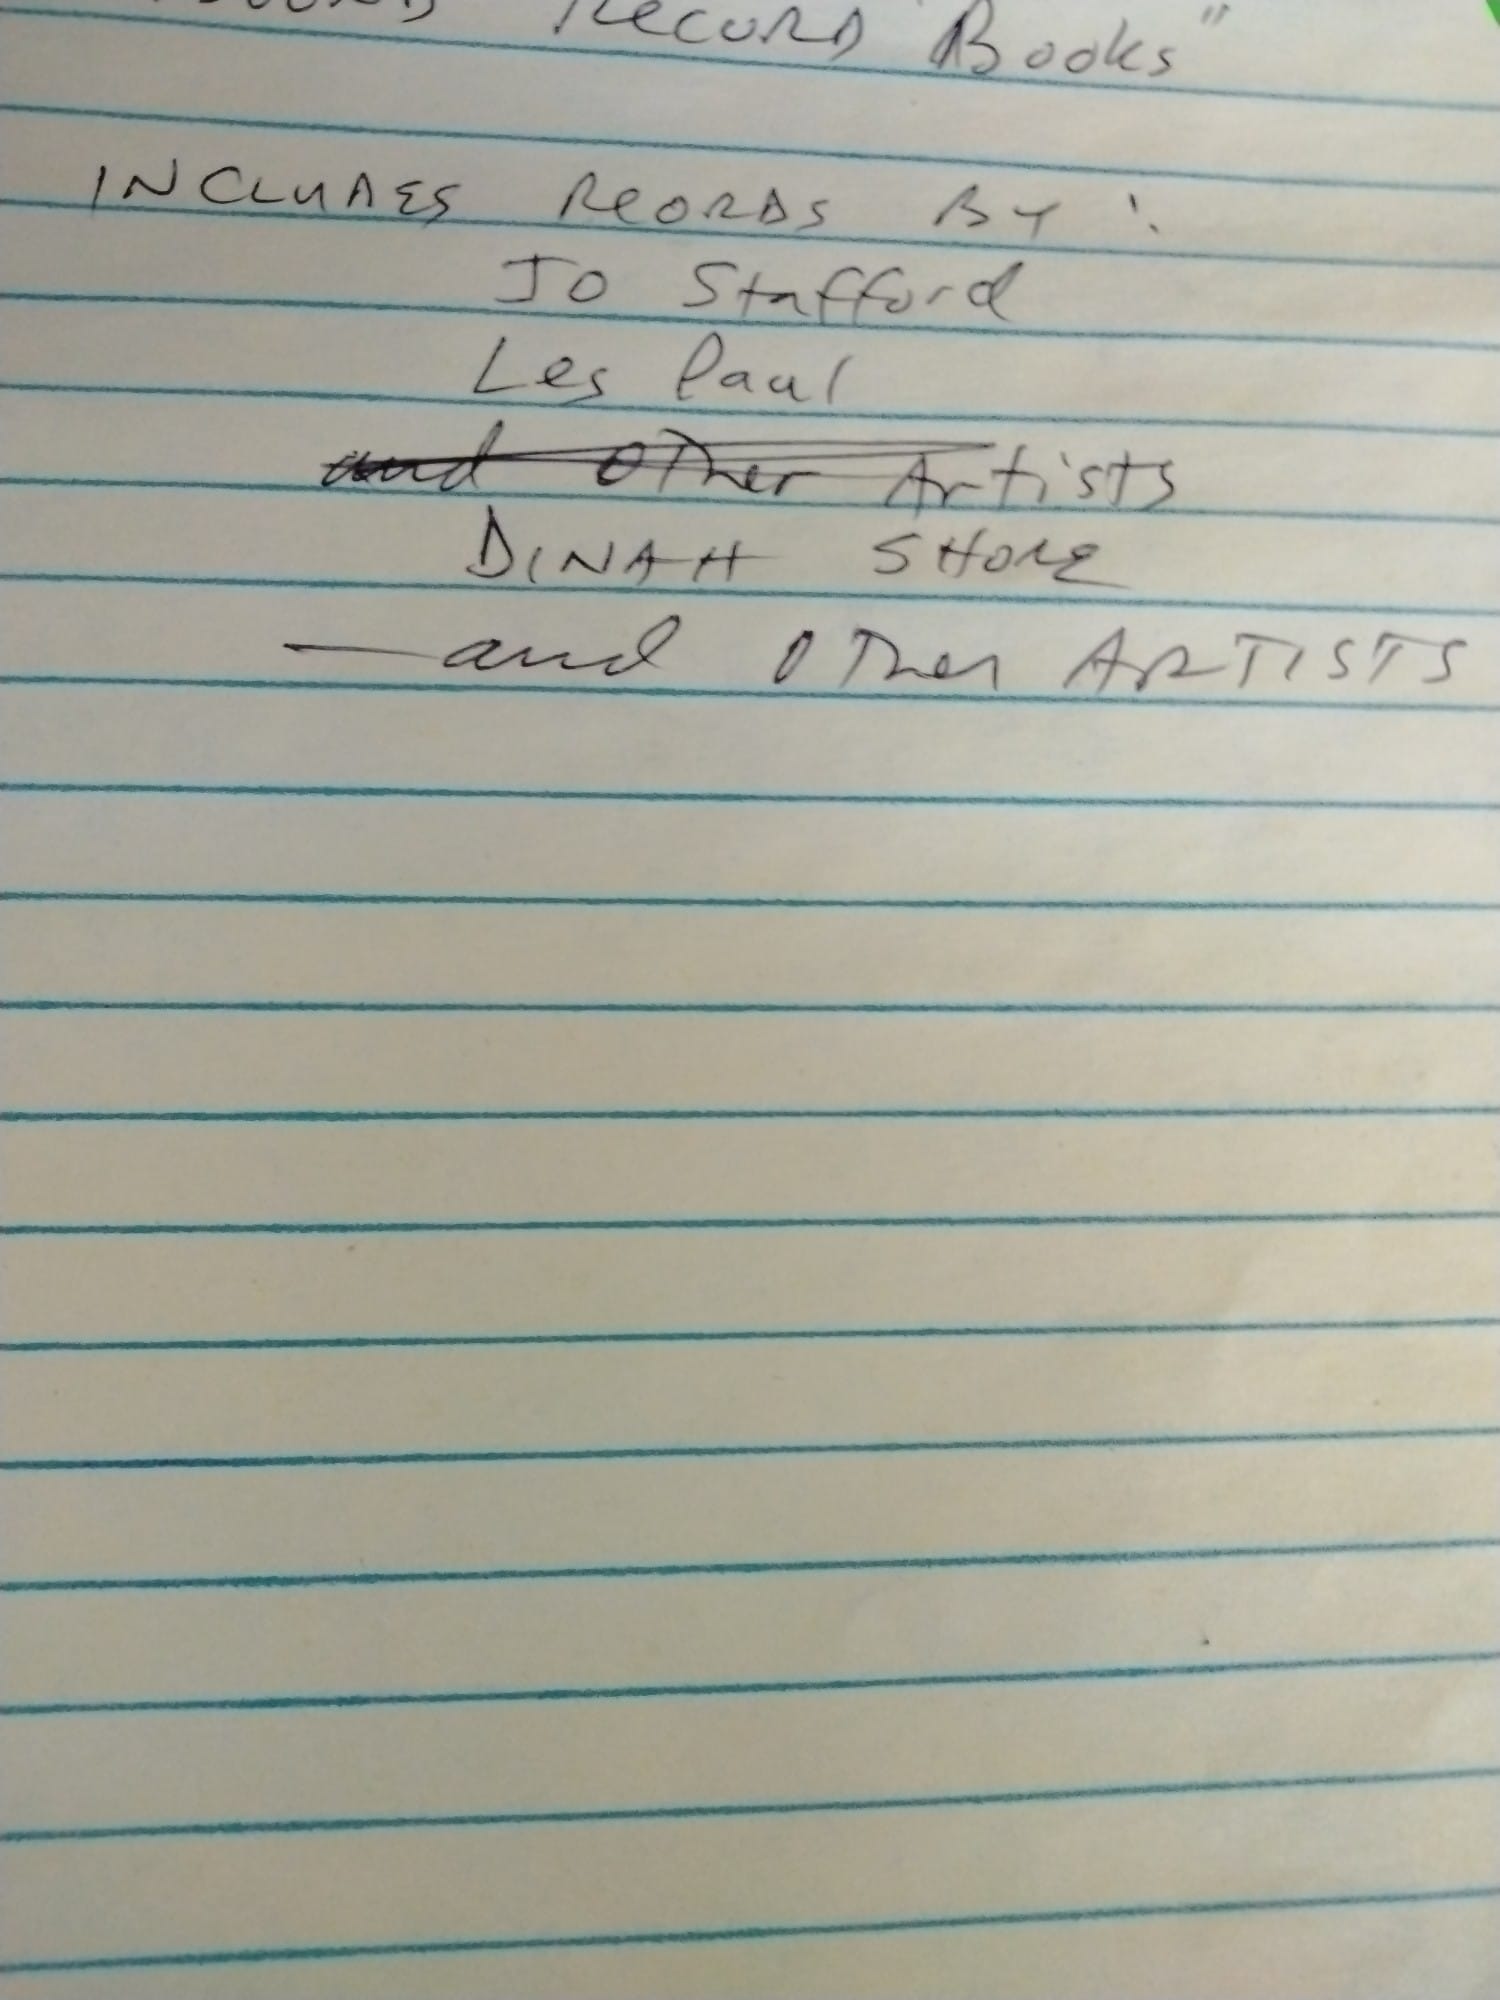 Record Books"
INCLUDES ReORDS BY :
JO Stafford
Les Paul
and other Artists
DINAH SHORE
—and OTher ARTISTS